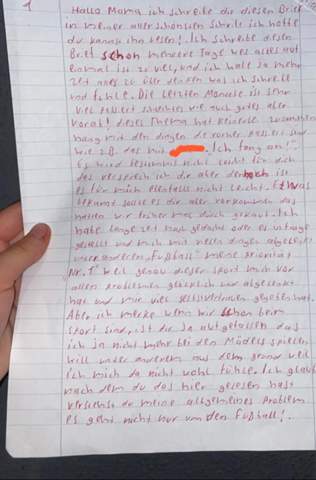 1
Hallo Mama ich schreibe dir diesen Brief
in meiner aller schönsten Schrift ich hoffe
du kannst ihn lesen! Ich schreibe diesen
Brief schon mehrere Tage weil alles auf
einmal ist zu viel, und ich halt ja mehr
Zeit alles zu über denken was ich schreibe
und fühle. Die letzten Monate ist sehr
viel passiert schlechtes wie auch gutes aber
Vorab! dieses Thema hat keinerlei zusammen
hang mit den dingen die vorher passiert sind
wie z.B. das mit . Ich fang an!
Es wird bestimmt nicht leicht für dich
das verspreche ich dir aber dennoch ist
es für mich ebenfalls nicht leicht. Etwas
bekannt sollte es dir aber vorkommen das
hatten wir früher mal durch gekaut. Ich
habe lange Zeit nach gedacht oder es infrage
gestellt und mich mit vielen dingen abgelenkt
unter anderem Fußball meine priorität
Nr. 1 weil genau dieser Sport mich vor
allen problemen glücklich und abgelenkt
hat und mir viel selbstvertrauen gegeben hat.
Aber ich merke wenn wir schon beim
Sport sind, ist dir ja aufgefallen das
ich ja nicht mehr bei den Mädels spielen
will unter anderem aus dem grund weil
ich mich da nicht wohl fühle. Ich glaub
nach dem du das hier gelesen hast
verstehst du meine allgemeinen Problem
es geht nicht nur um den Fußball!